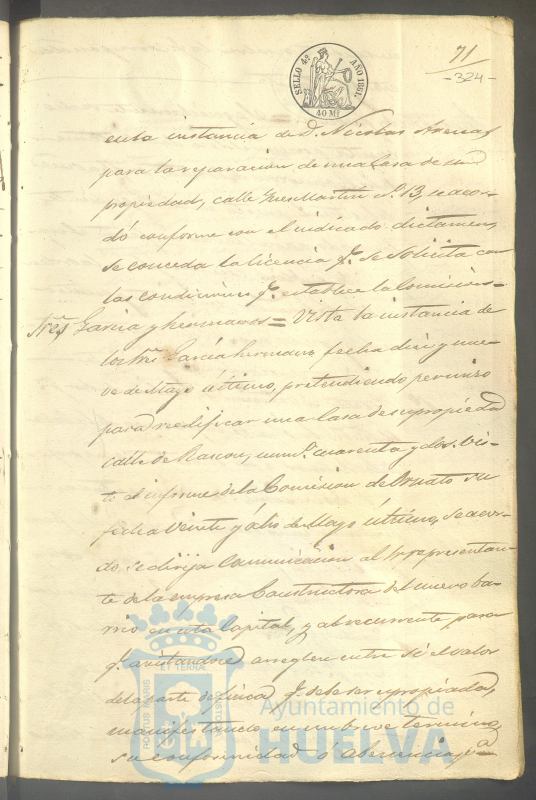 71
-324-
SELLO 4º AÑO 1861.
40 Ms
en la instancia de D. Nicolas Arenas
para la reparacion de una Casa de su
propiedad, calle Martin Nº 13, se acor-
dó conforme con el indicado dictamen,
se conceda la licencia q.e se solicita con
las condiciones q.e establece la Comision=
Sres Garcia y hermanos = Vista la instancia de
los Sres Garcia hermanos, fecha diez y nue-
ve de Mayo último, pretendiendo permiso
para reedificar una Casa de su propiedad
calle de Rascon, num.º cuarenta y dos. Vis-
to el informe de la Comision de Ornato su
fecha veinte y de Mayo último, se acor-
do se dirija Comunicacion al Sr. representan-
te de la empresa Constructora del nuevo ba-
rrio en esta Capital, y al recurrente para
q.e avistandose arreglen entre sí el valor
de la parte de finca q.e debe ser espropiada,
manifestando en un breve termino
su conformidad ó
PORTUS MARIS ET TERRAE CUSTODIA
Ayuntamiento de
HUELVA